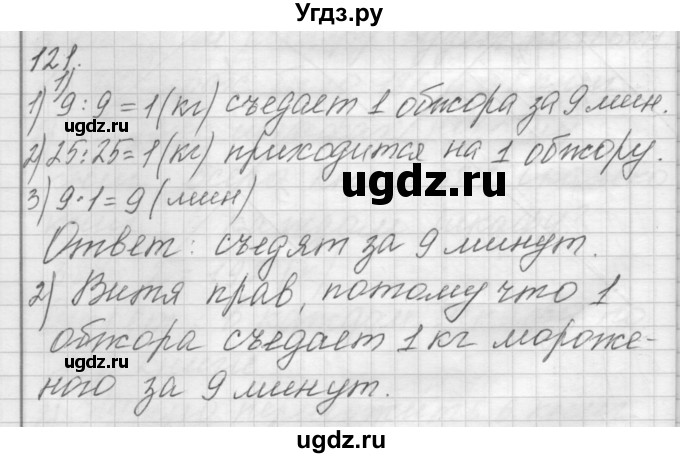 Угдз.ру
121.
1)
1) 9 : 9 = 1 (кг) съедает 1 обжора за 9 мин.
ugdz.ru
ugdz.ru
2) 25 : 25 = 1 (кг) приходится на 1 обжору.
ugdz.ru
3) 9 · 1 = 9 (мин)
Ответ: съедят за 9 минут.
2) Витя прав, потому что 1
ugdz.ru
ugdz.ru
обжора съедает 1 кг мороже-
ного за 9 минут.
ugdz.ru